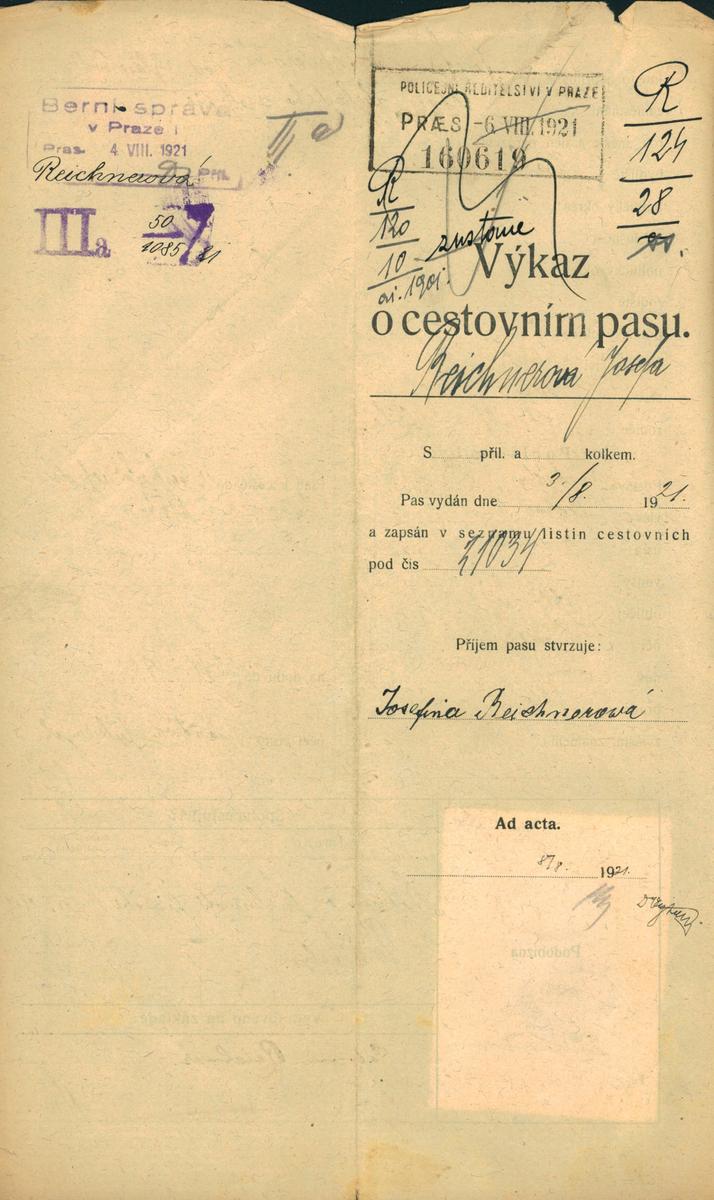 Berní správa
v Praze I
Praes. 4. VIII. 1921
Příl.
Reichnerová
IIIa
50
1085
7
II a
POLICEJNÍ ŘEDITELSTVÍ V PRAZE
PRÆS -6. VIII. 1921
160619
R
124
28
R
120
10
zustane
Výkaz
o cestovním pasu.
Reichnerová Josefa
S příl. a kolkem.
Pas vydán dne 3./8. 1921.
a zapsán v seznamu listin cestovních
pod čís 21034
Příjem pasu stvrzuje:
Josefina Reichnerová
Ad acta.
8/8. 1921.
Podobizna